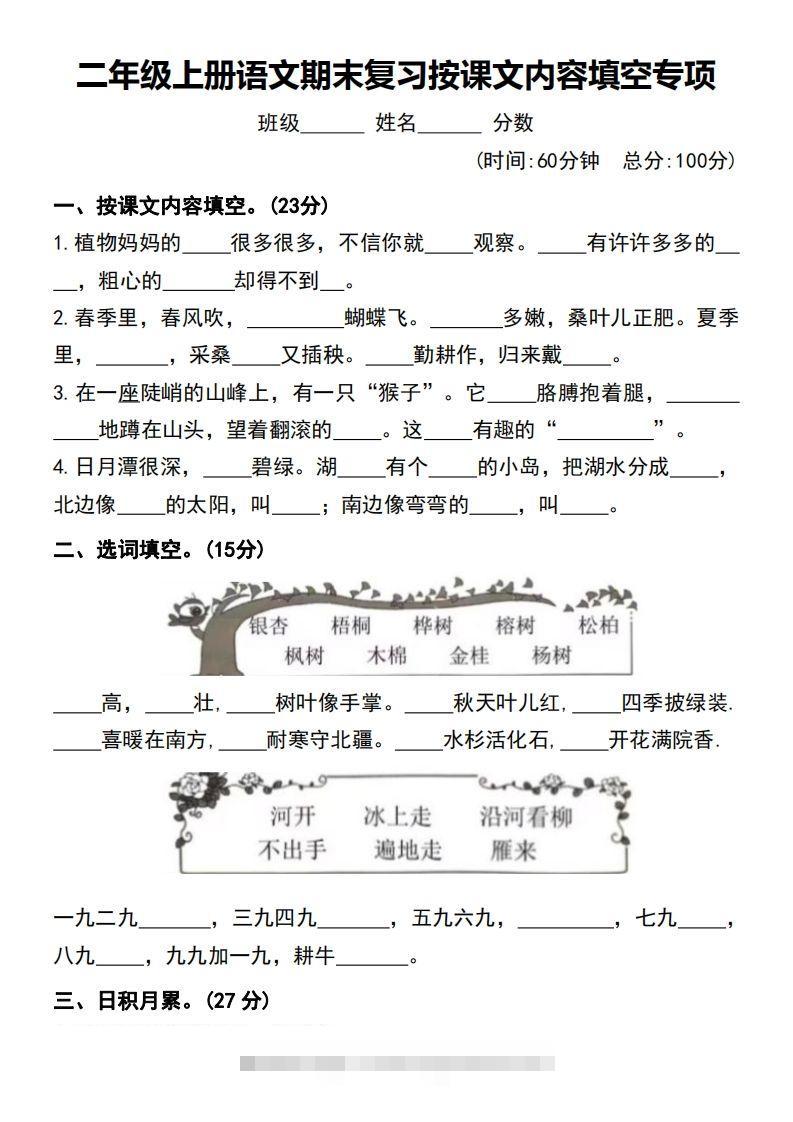 二年级上册语文期末复习按课文内容填空专项
班级______ 姓名______ 分数
(时间:60分钟 总分:100分)
一、按课文内容填空。(23分)
1.植物妈妈的____很多很多，不信你就____观察。____有许许多多的__
__，粗心的______却得不到__。
2.春季里，春风吹，________蝴蝶飞。______多嫩，桑叶儿正肥。夏季
里，______，采桑____又插秧。____勤耕作，归来戴____。
3.在一座陡峭的山峰上，有一只“猴子”。它____胳膊抱着腿，______
____地蹲在山头，望着翻滚的____。这____有趣的“________”。
4.日月潭很深，____碧绿。湖____有个____的小岛，把湖水分成____，
北边像____的太阳，叫____；南边像弯弯的____，叫____。
二、选词填空。(15分)
银杏 梧桐 桦树 榕树 松柏
枫树 木棉 金桂 杨树
____高，____壮,____树叶像手掌。____秋天叶儿红,____四季披绿装.
____喜暖在南方,____耐寒守北疆。____水杉活化石,____开花满院香.
河开 冰上走 沿河看柳
不出手 遍地走 雁来
一九二九______，三九四九______，五九六九，________，七九____，
八九____，九九加一九，耕牛______。
三、日积月累。(27 分)